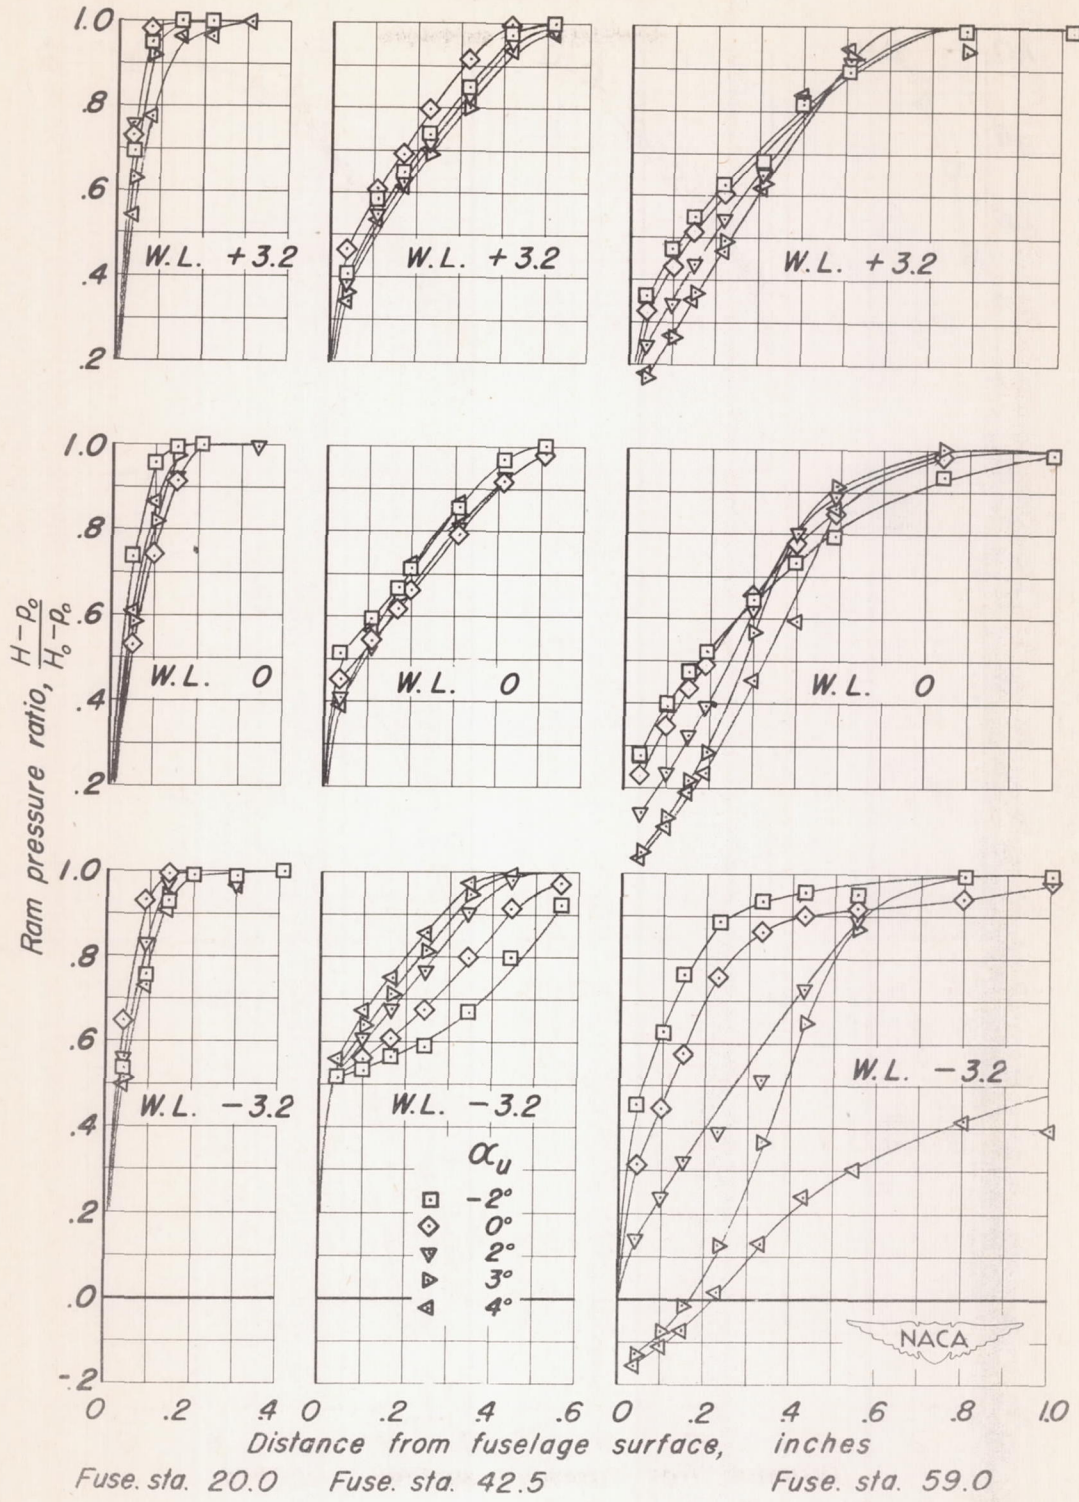 1.0
.8
.6
.4
.2
W.L. +3.2
W.L. +3.2
W.L. +3.2
1.0
.8
.6
.4
.2
W.L. 0
W.L. 0
W.L. 0
Ram pressure ratio, H-p₀/H₀-p₀
1.0
.8
.6
.4
.2
.0
-.2
W.L. -3.2
W.L. -3.2
W.L. -3.2
αᵤ
-2°
0°
2°
3°
4°
NACA
0 .2 .4 0 .2 .4 .6 0 .2 .4 .6 .8 1.0
Distance from fuselage surface, inches
Fuse. sta. 20.0 Fuse. sta. 42.5 Fuse. sta. 59.0